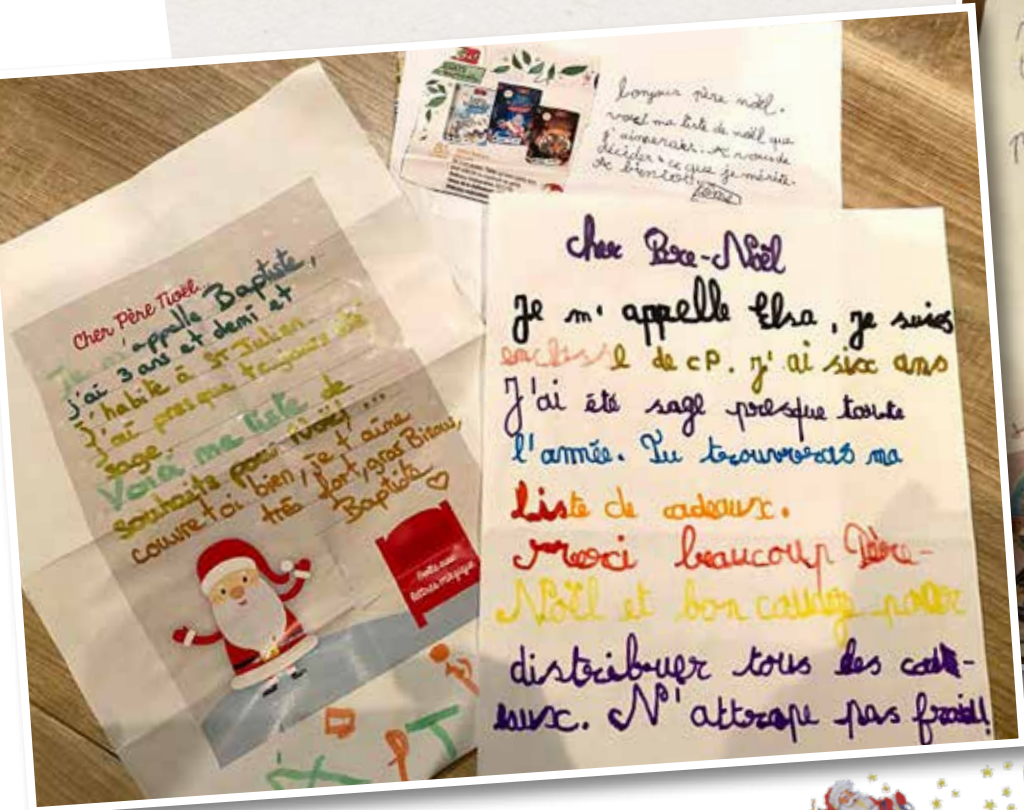 Cher Père Noël
Je m'appelle Baptiste,
j'ai 3 ans et demi et
j'habite à St Julien
J'ai presque toujours été
sage.
Voici ma liste de
souhaits pour Noël! ...
couvre toi bien, je t'aime
très fort, gros Bisous,
Baptiste
Boîte aux
lettres magique
bonjour père noël.
voici ma liste de noël que
j'aimerais. A vous de
décider ce que je mérite.
A bientot!
cher Père-Noël
Je m'appelle Elsa, je suis
en classe de cP. j'ai six ans
J'ai été sage presque toute
l'année. Tu trouveras ma
liste de cadeaux.
Merci beaucoup Père-
Noël et bon courage pour
distribuer tous les cad-
eaux. N'attrape pas froid!